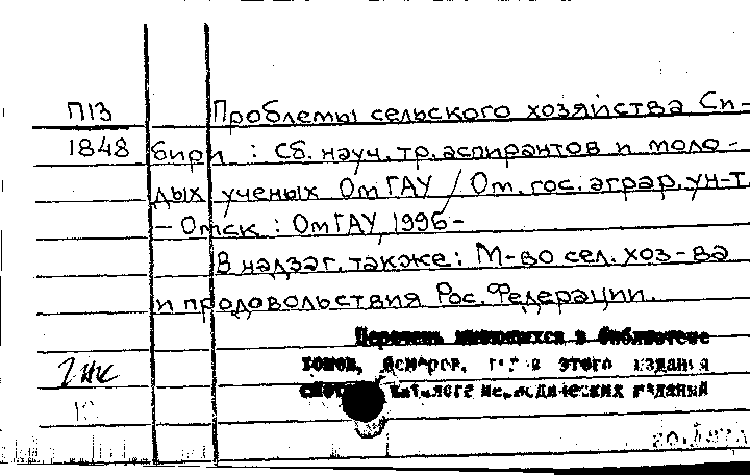 П13 Проблемы сельского хозяйства Си-
1848 бири : Сб. науч. тр. аспирантов и моло-
дых ученых ОмГАУ / Ом. гос. аграр. ун-т.
- Омск : ОмГАУ, 1996-
В надзаг. также: М-во сел. хоз-ва
и продовольствия Рос. Федерации.
Перечень имеющихся в библиотеке
томов, номеров, этого издания
каталоге периодических изданий